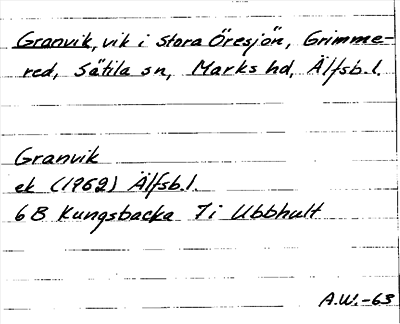 Granvik, vik i Stora Öresjön, Grimme-
red, Sätila sn, Marks hd, Älfsb.l.
Granvik
ek (1962) Älfsb.l.
6B Kungsbacka 7i Ubbhult
A.W.-63